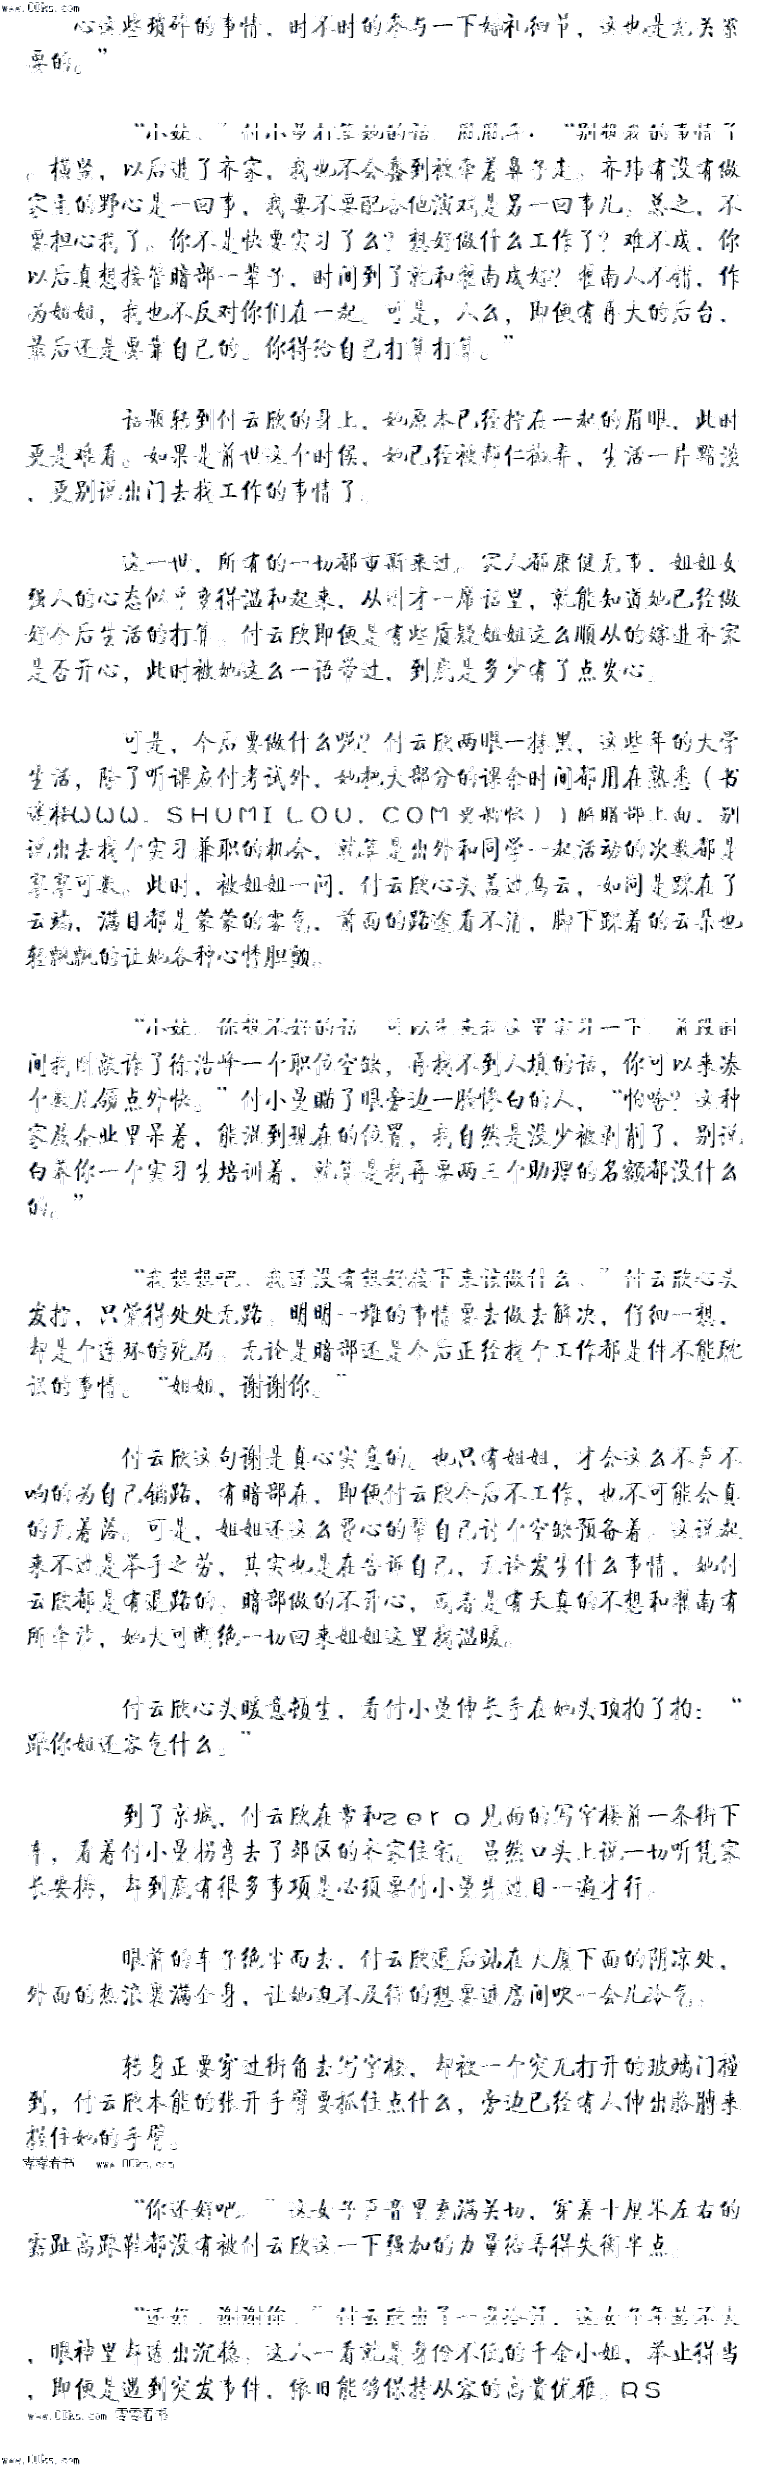 www.00ks.com
心这些琐碎的事情，时不时的参与一下婚礼细节，这也是无关紧
要的。”
“小妹，”付小曼打笔她的话，
“别想我的事情了
。横竖，以后进了齐家，我也不会蠢到被牵着鼻子走。齐玮有没有做
家主的野心是一回事，我要不要配合他演戏是另一回事儿。总之，不
要担心我了。你不是快要实习了么？想好做什么工作了？难不成，你
以后真想接管暗部一辈子，时间到了就和耀南成婚？耀南人不错，作
为姐姐，我也不反对你们在一起。可是，人么，即便有再大的后台，
最后还是要靠自己的。你得给自己打算打算。”
话题转到付云欣的身上，她原本已经拧在一起的眉眼，此时
更是难看。如果是前世这个时候，她已经被郝仁抛弃，生活一片黯淡
，更别说出门去找工作的事情了。
这一世，所有的一切都重新来过。家人都康健无事，姐姐女
强人的心态似乎变得温和起来，从刚才一席话里，就能知道她已经做
好今后生活的打算。付云欣即便是有些质疑姐姐这么顺从的嫁进齐家
是否开心，此时被她这么一语带过，到底是多少有了点安心。
可是，今后要做什么呢？付云欣两眼一抹黑，这些年的大学
生活，除了听课应付考试外，她把大部分的课余时间都用在熟悉（书
迷楼WWW．SHUMILOU．COM更新快））解暗部上面，别
说出去找个实习兼职的机会，就算是出外和同学一起活动的次数都是
寥寥可数。此时，被姐姐一问，付云欣心头盖过乌云，如同是踩在了
云端，满目都是蒙蒙的雾气，前面的路途看不清，脚下踩着的云朵也
轻飘飘的让她各种心惰胆颤。
“小妹，你想不好的话，可以先来我这里实习一下，前段时
间我刚敲诈了徐浩峰一个职位空缺，再找不到人填的话，你可以来凑
个数儿领点外快。”付小曼瞄了眼旁边一脸惨白的人，“怕啥？这种
家族企业里呆着，能混到现在的位置，我自然是没少被剥削了，别说
白养你一个实习生培训着，就算是我再要两三个助理的名额都没什么
的。”
“我想想吧，我还没有想好接下来该做什么。”付云欣心头
发拧，只觉得处处无路。明明一堆的事情要去做去解决，仔细一想，
却是个连环的死局。无论是暗部还是今后正经找个工作都是件不能耽
误的事情。“姐姐，谢谢你。”
付云欣这句谢是真心实意的。也只有姐姐，才会这么不声不
响的为自己铺路，有暗部在，即便付云欣今后不工作，也不可能会真
的无着落。可是，姐姐还这么费心的帮自己讨个空缺预备着。这说起
来不过是举手之劳，其实也是在告诉自己，无论发生什么事情，她付
云欣都是有退路的。暗部做的不开心，或者是有天真的不想和耀南有
所牵涉，她大可断绝一切回来姐姐这里找温暖。
付云欣心头暖意顿生，看付小曼伸长手在她头顶拍了拍：“
跟你姐还客气什么。”
到了京城，付云欣在常和zero见面的写字楼前一条街下
车，看着付小曼拐弯去了郊区的齐家住宅。虽然口头上说一切听凭家
长安排，却到底有很多事项是必须要付小曼先过目一遍才行。
眼前的车子绝尘而去，付云欣退后站在大厦下面的阴凉处，
外面的热浪裹满全身，让她迫不及待的想要进房间吹一会儿冷气。
转身正要穿过街角去写字楼，却被一个突兀打开的玻璃门撞
到，付云欣本能的张开手臂要抓住点什么，旁边已经有人伸出胳膊来
握住她的手臂。
零零看书 www.00ks.com
“你还好吧。”这女子声音里充满关切，穿着十厘米左右的
露趾高跟鞋都没有被付云欣这一下强加的力量给弄得失衡半点。
“还好，谢谢你。”付云欣
，眼神里却透出沉稳。这人一看就是身份不低的千金小姐，举止得当
，即便是遇到突发事件，依旧能够保持从容的高贵优雅。RS
www.00ks.com 零零看书
www.00ks.com